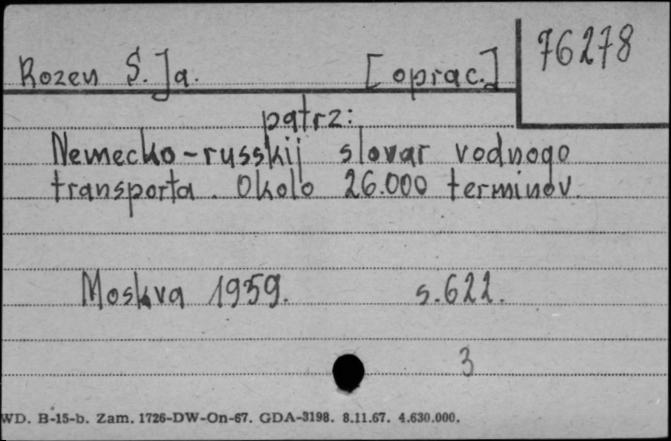 76278
Rozen S. Ja. [oprac.]
patrz:
Nemecko-russkij slovar vodnogo
transporta. Okolo 26.000 terminov.
Moskva 1959. s.622.
3
WD. B-15-b. Zam. 1726-DW-On-67. GDA-3198. 8.11.67. 4.630.000.